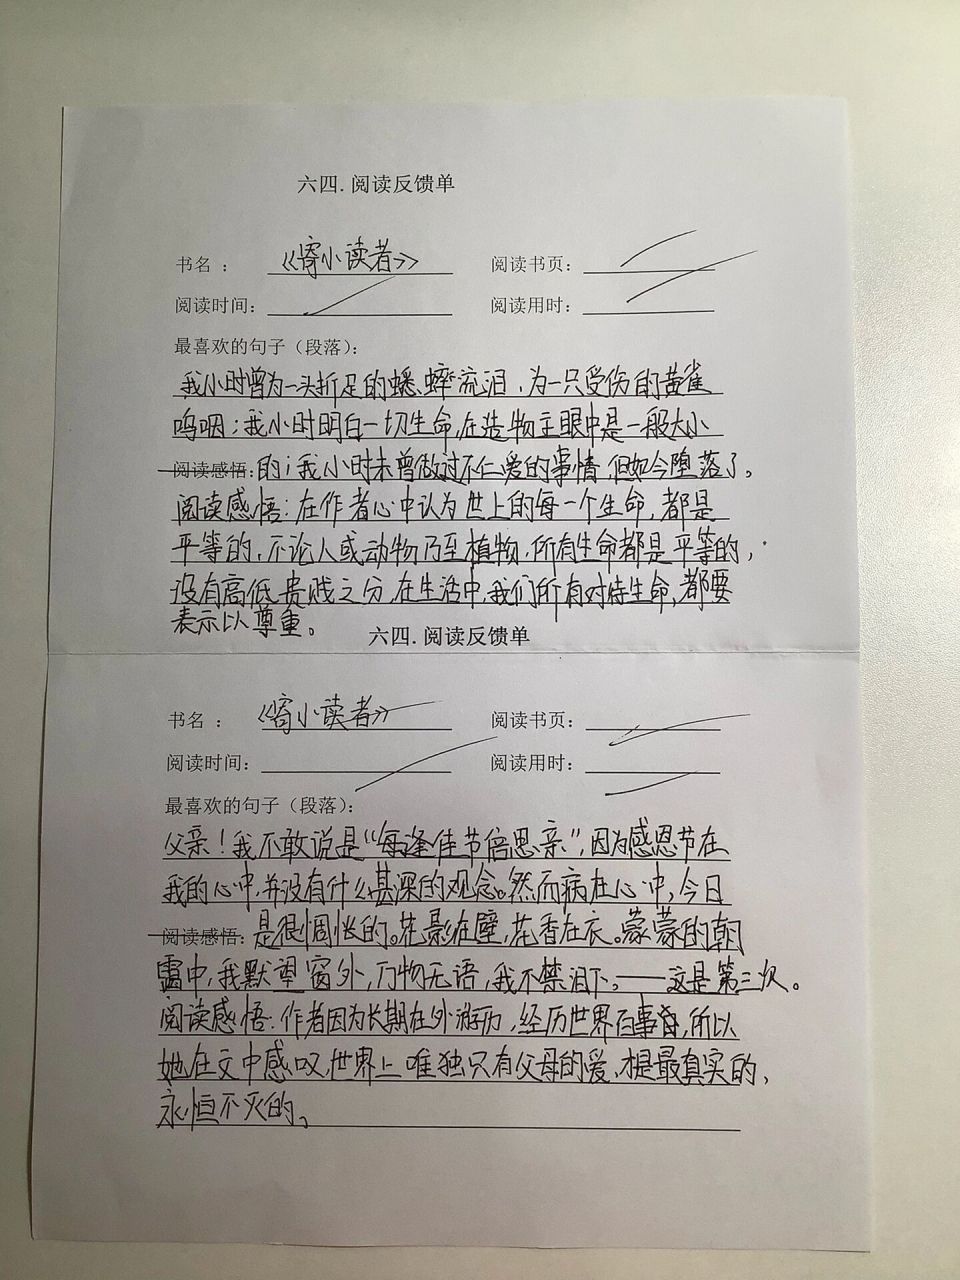 六四.阅读反馈单
书名： 《寄小读者》 阅读书页：
阅读时间： 阅读用时：
最喜欢的句子（段落）：
我小时曾为一头折足的蟋蟀流泪，为一只受伤的黄雀
呜咽；我小时明白一切生命，在造物主眼中是一般大小
阅读感悟：的；我小时未曾做过不仁爱的事情，但如今堕落了。
阅读感悟：在作者心中认为世上的每一个生命，都是
平等的，不论人或动物乃至植物，所有生命都是平等的，
没有高低贵贱之分，在生活中，我们所有对待生命，都要
表示以尊重。
六四.阅读反馈单
书名： 《寄小读者》 阅读书页：
阅读时间： 阅读用时：
最喜欢的句子（段落）：
父亲！我不敢说是“每逢佳节倍思亲”，因为感恩节在
我的心中，并没有什么甚深的观念。然而病在心中，今日
阅读感悟：是很惆怅的。花影在壁，花香在衣。蒙蒙的朝
霭中，我默望窗外，万物无语，我不禁泪下。——这是第三次。
阅读感悟：作者因为长期在外游历，经历世界百事，所以
她在文中感叹，世界上唯独只有父母的爱，才是最真实的，
永恒不灭的。